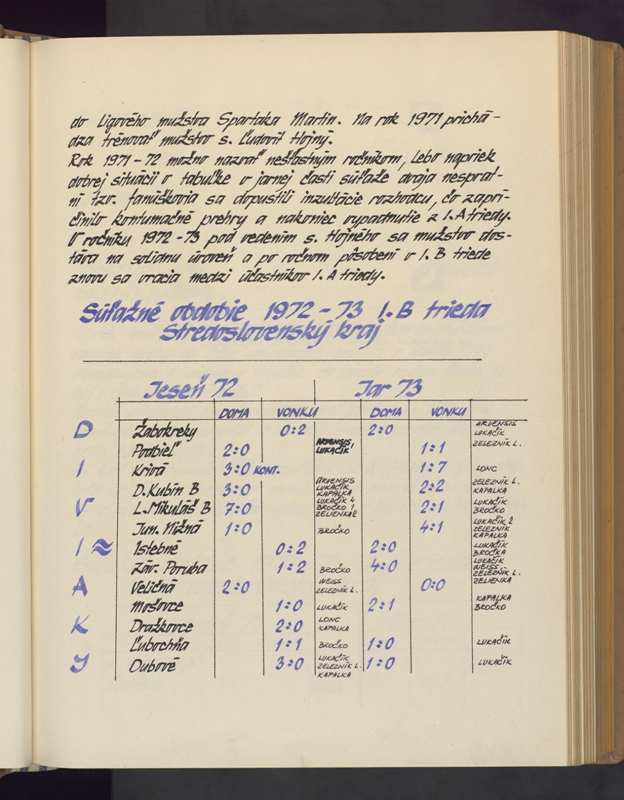 do Ligového mužstva Spartaka Martin. Na rok 1971 prichá-
dza trénovať mužstvo s. Ľudovít Hojný.
Rok 1971-72 možno nazvať nešťastným ročníkom, lebo napriek
dobrej situácii v tabuľke v jarnej časti súťaže dvaja nesprat-
ní tzv. fanúškovia sa dopustili inzultácie rozhodcu, čo zaprí-
činilo kontumačné prehry a nakoniec vypadnutie z I. A triedy.
V ročníku 1972-73 pod vedením s. Hojného sa mužstvo dos-
táva na solídnu úroveň a po ročnom pôsobení v I. B triede
znovu sa vracia medzi účastníkov I. A triedy.
Súťažné obdobie 1972-73 I. B trieda
Stredoslovenský kraj
Jeseň 72 Jar 73
DOMA VONKU DOMA VONKU
D Žabokreky 0:2 2:0 ARVENSIS LUKAČIK
Podbieľ 2:0 ARVENSIS, LUKAČIK 1:1 ŽELEZNÍK L.
I Krivá 3:0 KONT. 1:7 LONC
D. Kubín B 3:0 ARVENSIS LUKAČIK KAPALKA 2:2 ŽELEZNÍK L. KAPALKA
V L. Mikuláš B 7:0 LUKAČIK 4 BROČKO 1 ZELIENKA 2 2:1 LUKAČIK BROČKO
Jun. Nižná 1:0 BROČKO 4:1 LUKAČIK 2 ŽELEZNÍK KAPALKA
I ≈ Istebné 0:2 2:0 LUKAČIK BROČKA
Záv. Poruba 1:2 BROČKO 4:0 LUKAČIK WEISS, ŽELEZNÍK L. ZELIENKA
A Veličná 2:0 WEISS ŽELEZNÍK L. 0:0
Mošovce 1:0 LUKAČIK 2:1 KAPALKA BROČKO
K Dražkovce 2:0 LONC KAPALKA
Ľubochňa 1:1 BROČKO 1:0 LUKAČIK
Y Dubové 3:0 LUKAČIK ŽELEZNÍK L. KAPALKA 1:0 LUKAČIK